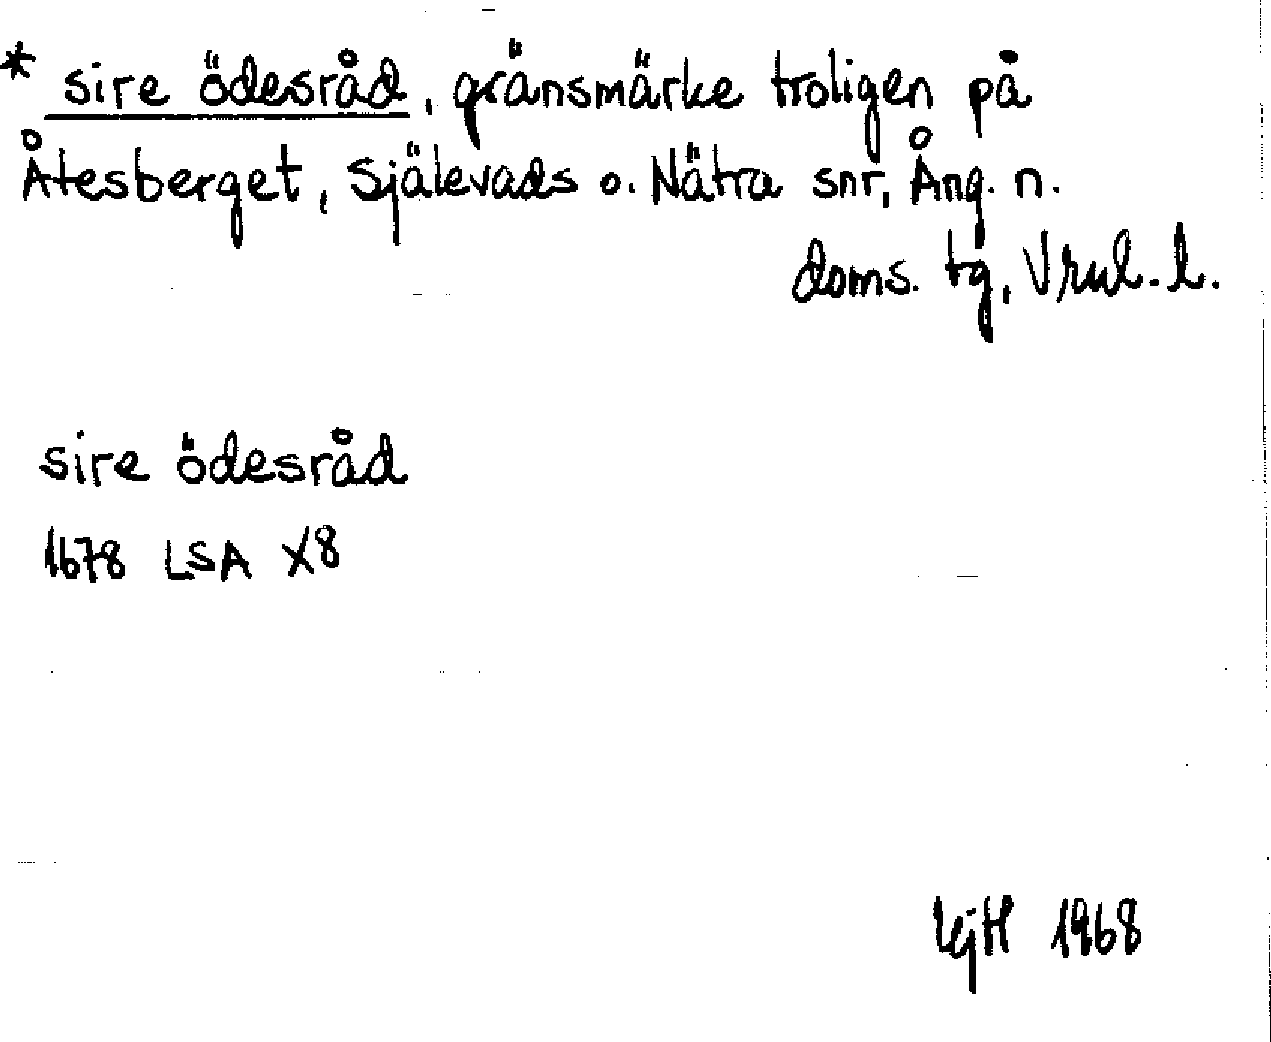 * sire ödesråd, gränsmärke troligen på
Åtesberget, Själevads o. Nätra snr, Ång. n.
doms. tg, Vrul. l.
sire ödesråd
1678 LSA X8
1968